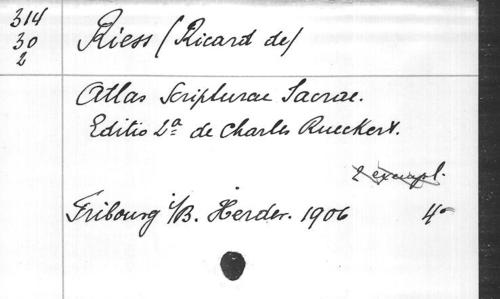 314
30
2
Riess (Ricard de)
Atlas Scripturae Sacrae.
Editio 2ª de Charles Rueckert.
2 exempl.
Fribourg i/B. Herder. 1906 4º